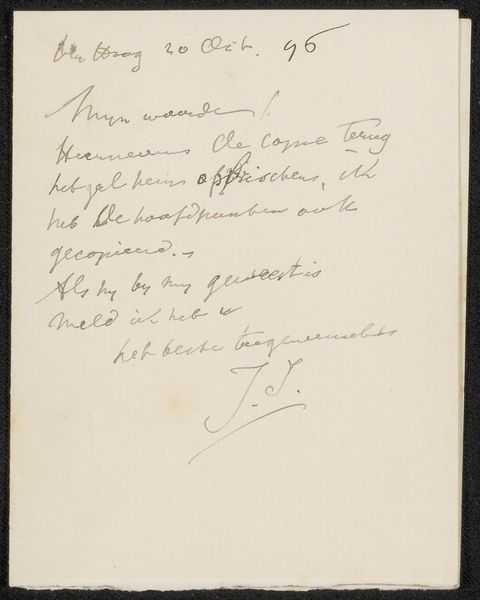 den Haag 20 Oct. 96
Myn waarde!
Hiernevens de copie terug
het zal hem opfrisschen, ik
heb de hoofdpunten ook
gecopieerd.
Als hy by my geweest is
meld ik het u
het beste toegewenscht
J.J.